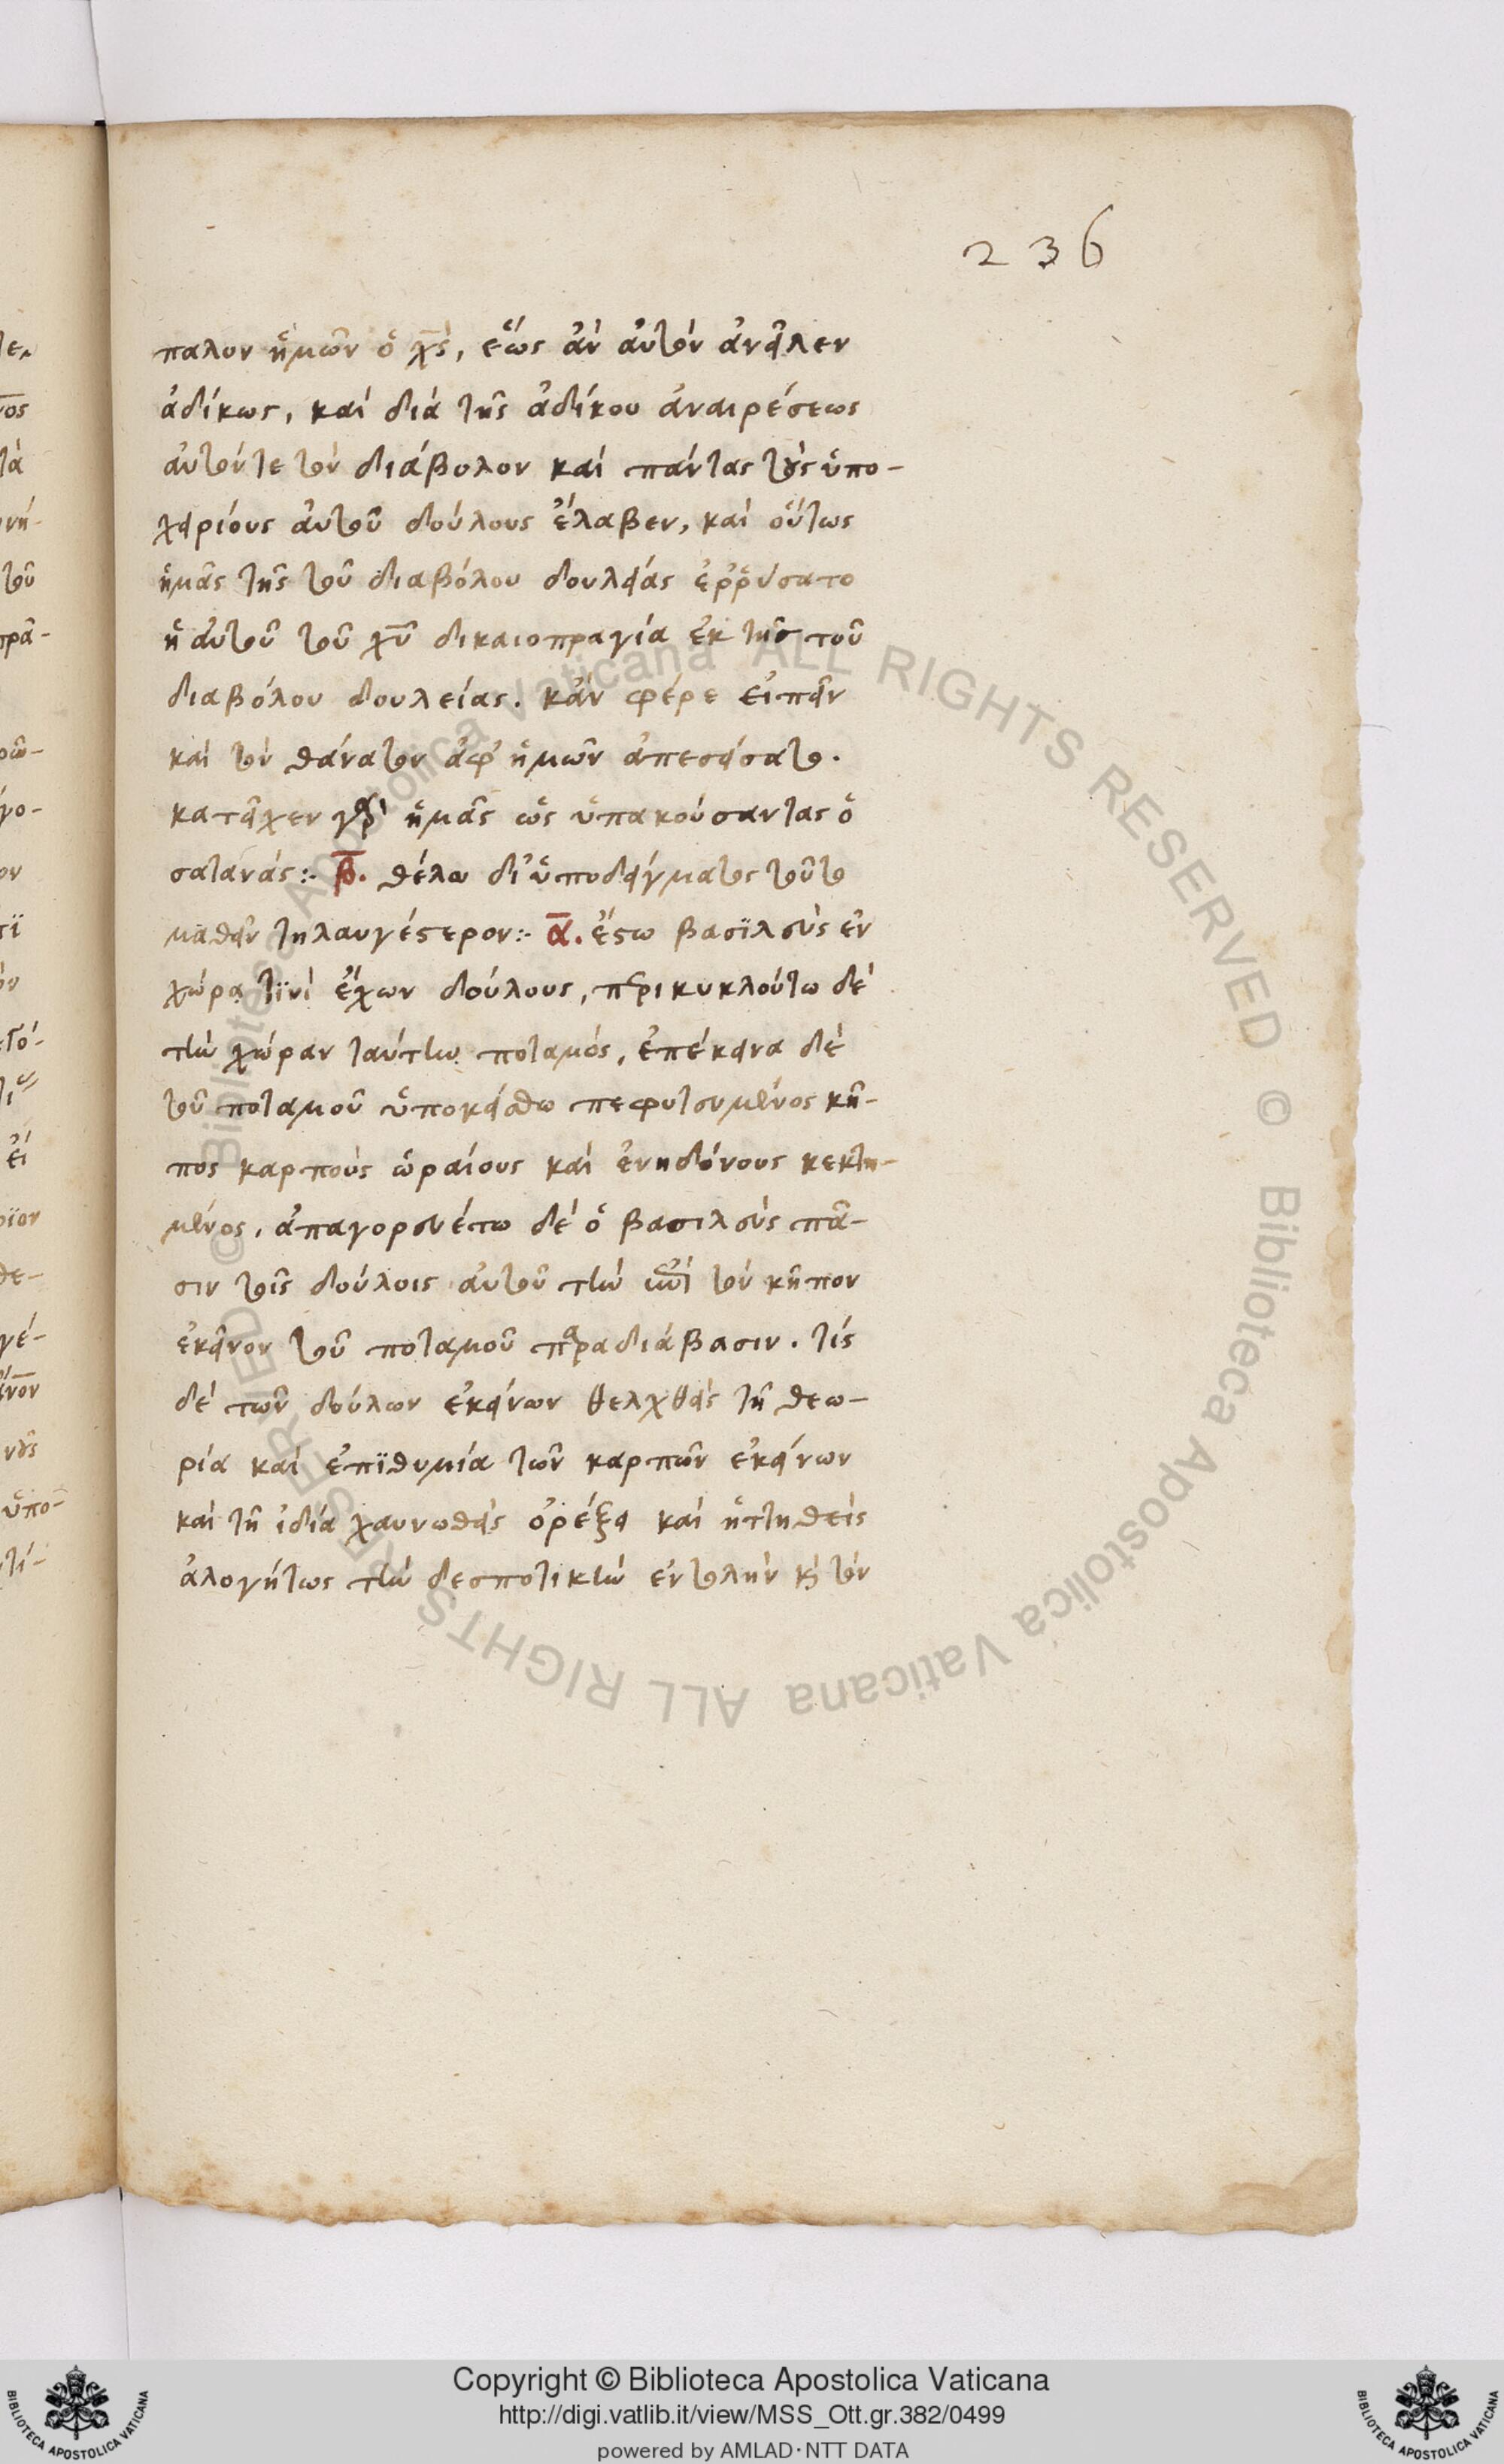 236
παλον ἡμῶν ὁ χς, ἕως ἂν αὐτὸν ἀνεῖλεν
ἀδίκως, καὶ διὰ τῆς ἀδίκου ἀναιρέσεως
αὐτόν τε τὸν διάβολον καὶ πάντας τοὺς ὑπο-
χειρίους αὐτοῦ δούλους ἔλαβεν, καὶ οὕτως
ἡμᾶς τῆς τοῦ διαβόλου δουλείας ἐρρύσατο
ἡ αὐτοῦ τοῦ χυ δικαιοπραγία ἐκ τῆς τοῦ
διαβόλου δουλείας. κἂν φέρε εἰπεῖν
καὶ τὸν θάνατον ἀφ' ἡμῶν ἀπεσείσατο.
κατεῖχεν γὰρ ἡμᾶς ὡς ὑπακούσαντας ὁ
σατανάς:- β. θέλω δι' ὑποδείγματος τοῦτο
μαθεῖν τηλαυγέστερον:- α. ἔστω βασϊλεὺς ἐν
χώρα τϊνὶ ἔχων δούλους, περικυκλούτω δὲ
τὴν χώραν ταύτην ποταμός, ἐπέκεινα δὲ
τοῦ ποταμοῦ ὑποκείσθω πεφυτευμένος κῆ-
πος καρποὺς ὡραίους καὶ ἐνηδόνους κεκτη-
μένος. ἀπαγορευέτω δὲ ὁ βασιλεὺς πᾶ-
σιν τοῖς δούλοις αὐτοῦ τὴν ἐπὶ τὸν κῆπον
ἐκεῖνον τοῦ ποταμοῦ παραδιάβασιν. τίς
δὲ τῶν δούλων ἐκείνων θελχθεὶς τῆ θεω-
ρία καὶ ἐπϊθυμία τῶν καρπῶν ἐκείνων
καὶ τῆ ἰδία χαυνωθεὶς ὀρέξει καὶ ἡττηθεὶς
ἀλογήτως τὴν δεσποτικὴν ἐντολὴν κ τὸν
Copyright © Biblioteca Apostolica Vaticana
http://digi.vatlib.it/view/MSS_Ott.gr.382/0499
powered by AMLAD·NTT DATA